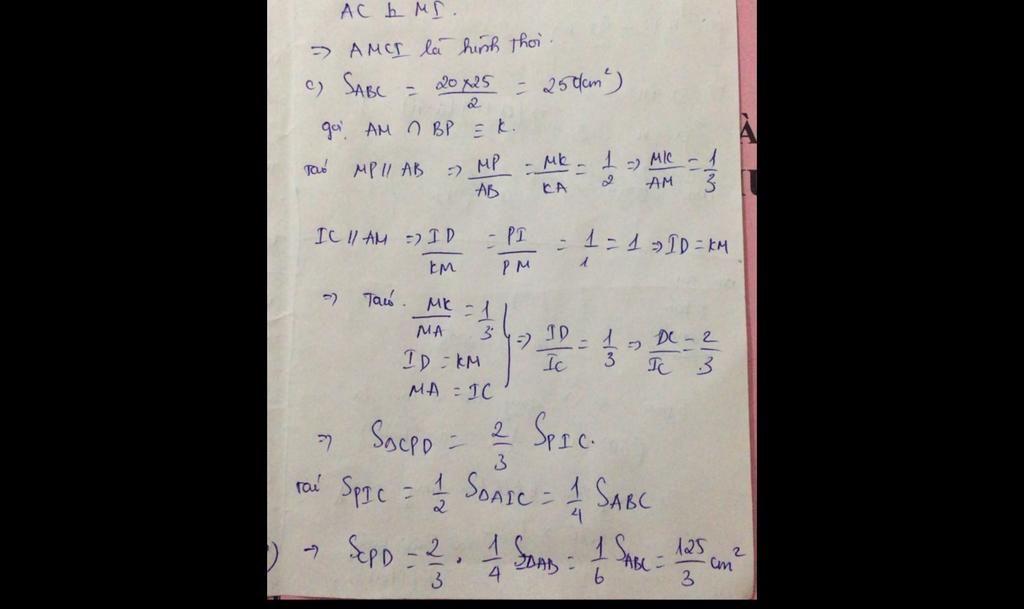 AC ⊥ MI.
=> AMCI là hình thoi.
c) S_ABC = 20×25/2 = 250(cm²)
gọi AM ∩ BP ≡ K.
Ta có MP // AB => MP/AB = MK/KA = 1/2 => MK/AM = 1/3
IC // AM => ID/KM = PI/PM = 1/1 = 1 => ID = KM
=> Ta có. MK/MA = 1/3
ID = KM
MA = IC
=> ID/IC = 1/3 => DC/IC = 2/3
=> SΔCPD = 2/3 S_PIC.
Ta có S_PIC = 1/2 SΔAIC = 1/4 S_ABC
=> S_CPD = 2/3 . 1/4 SΔAB = 1/6 S_ABC = 125/3 cm²
À